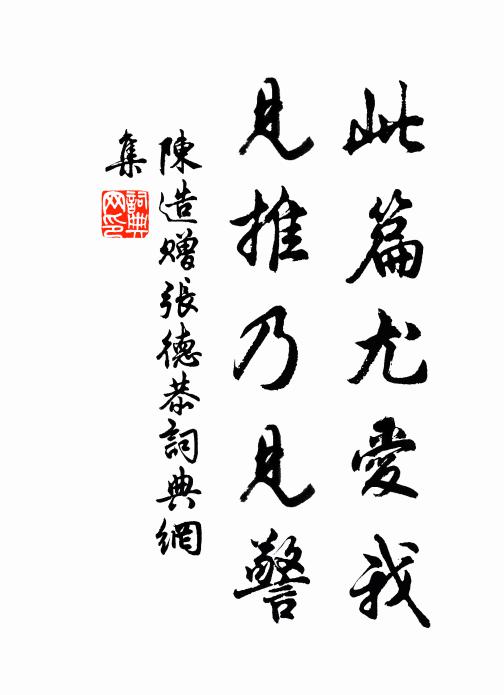 此篇尤愛我
見推乃見警
陳造贈張德恭詞典網
集
詞典
网印